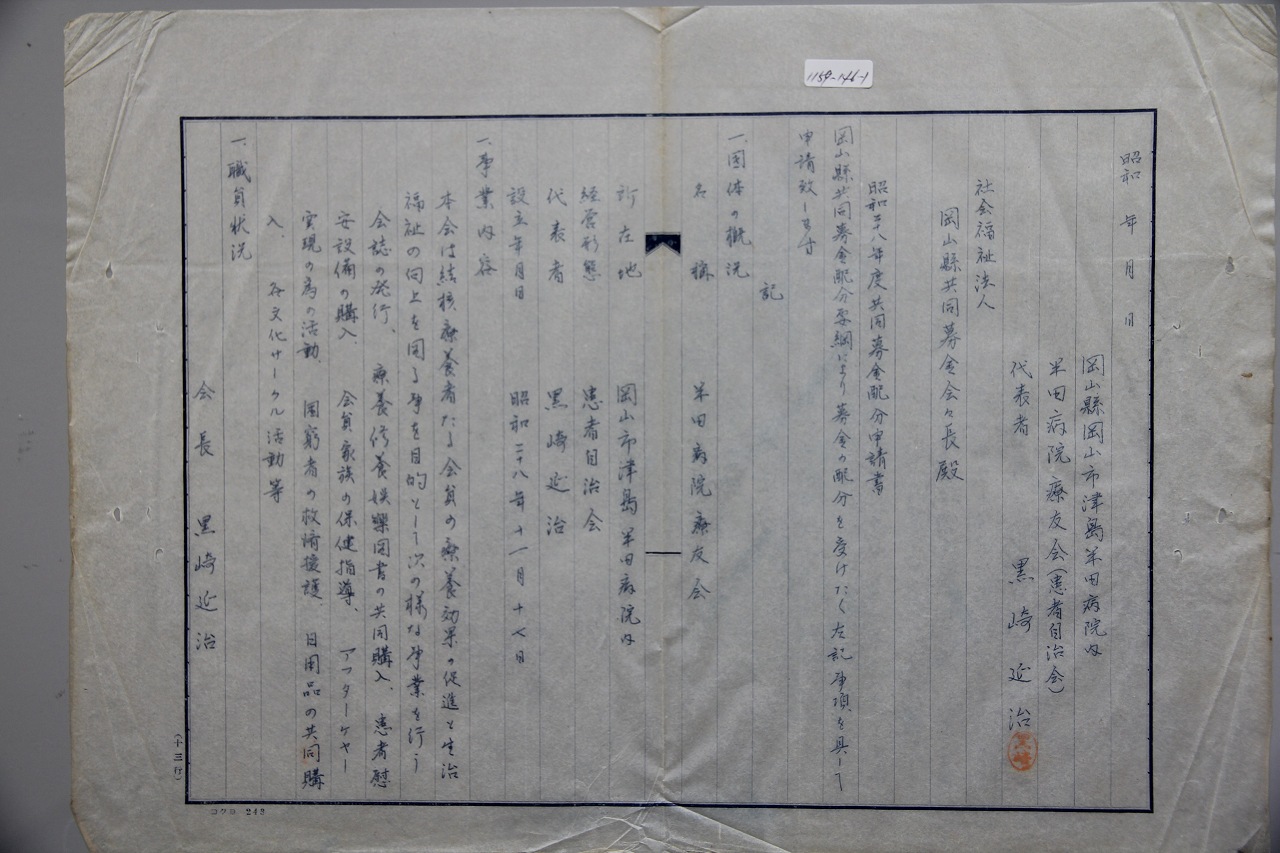 1159-146-1
昭和 年 月 日
岡山縣岡山市津島半田病院内
半田病院療友会(患者自治会)
代表者 黒崎延治
黒崎
社会福祉法人
岡山縣共同募金会々長殿
昭和二十八年度共同募金配分申請書
岡山縣共同募金配分要綱により募金の配分を受けたく左記事項を具して
申請致します
記
一、団体の概況
名称 半田病院療友会
所在地 岡山市津島半田病院内
経営形態 患者自治会
代表者 黒崎延治
設立年月日 昭和二十八年十一月十七日
一、事業内容
本会は結核療養者たる会員の療養効果の促進と生活
福祉の向上を図る事を目的として次の様な事業を行う
会誌の発行、 療養修養娯楽図書の共同購入、 患者慰
安設備の購入、 会員家族の保健指導、 アフターケヤー
実現の為の活動、 困窮者の救済援護、 日用品の共同購
入、 各文化サークル活動等
一、職員状況
会長 黒崎延治
(十三行)
コクヨ 242